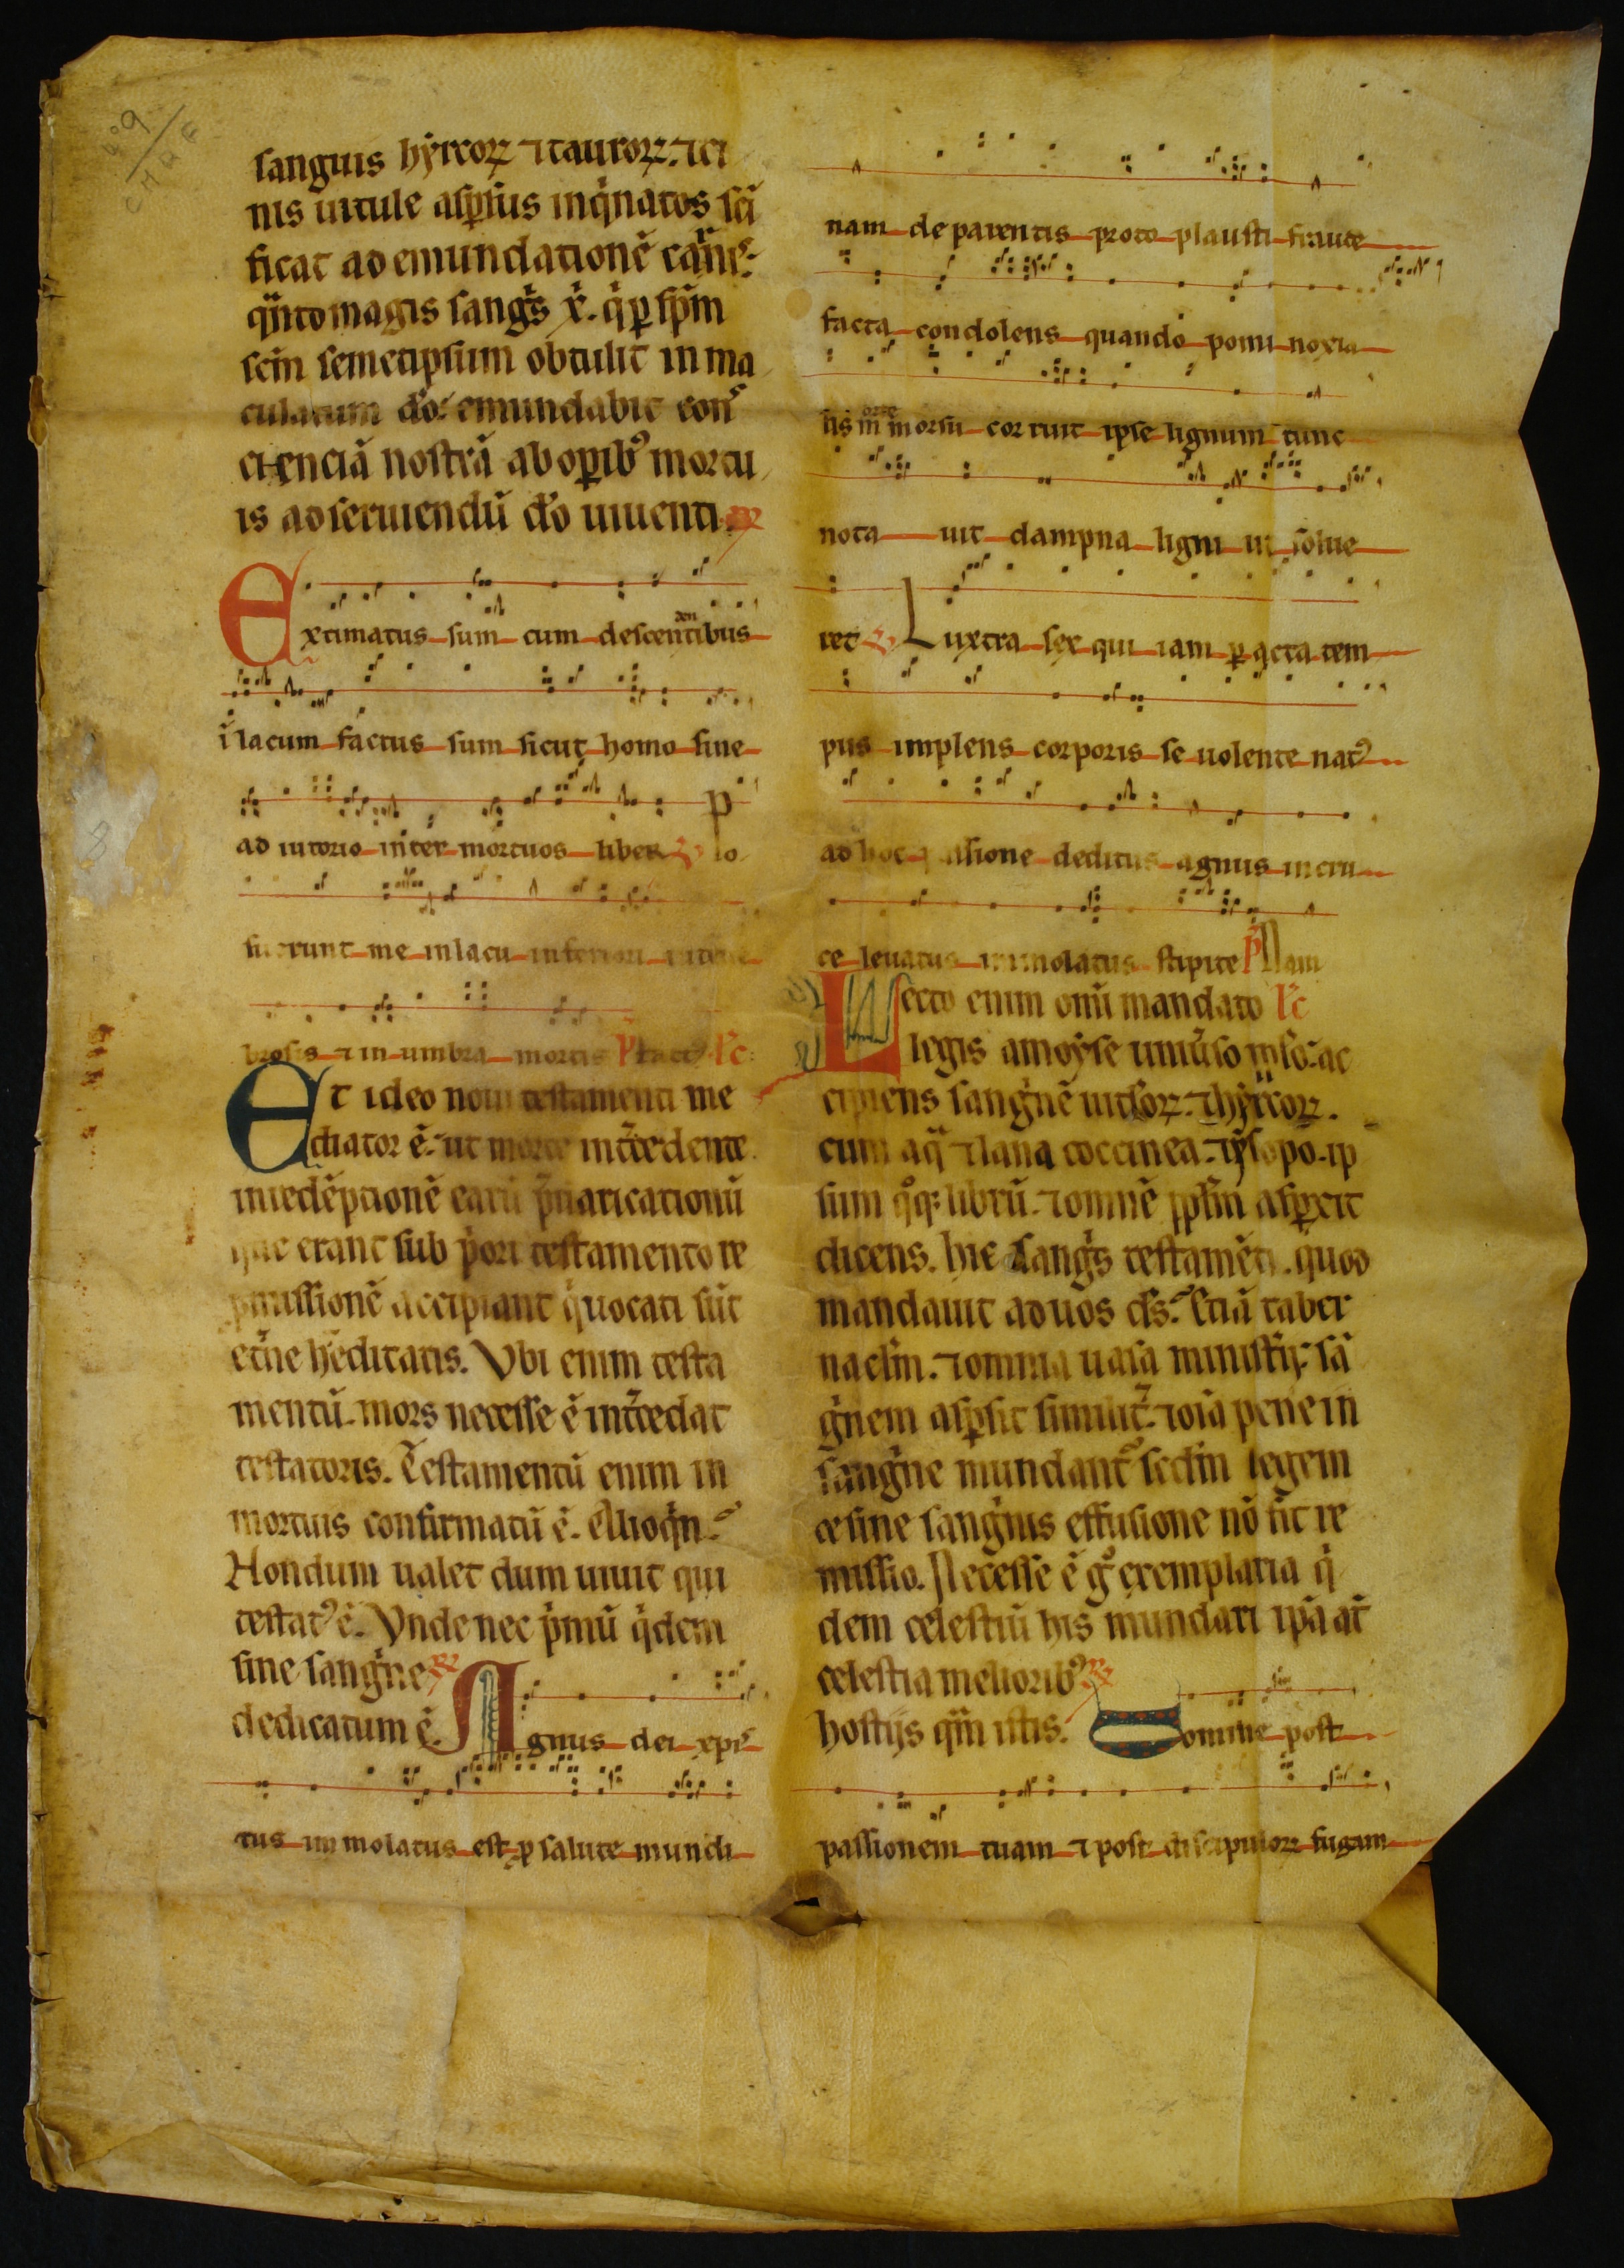 sanguis hẏrcorꝝ ⁊ taurorꝝ. ⁊ ci
nis uitule asp̱sus inq̍natos sc̄i
ficat ad emundationē carnis:
q̄nto magis sang̍s x̄. q̍ ꝑ sp̄m
sc̄m semetipsum obtulit in ma
culatum dō. emundabit cons
cienciā nostrā ab oꝑibꝰ mortu
is ad seruiendū dō uiuenti. ℟
Extimatus sum cum descendentibus
ī lacum factus sum sicut homo sine
ad iutorio inter mortuos liber ℣ Po
suerunt me in lacu inferiori in tene
brosis ⁊ in umbra mortis P̄ factꝰ. l̄c:
Et ideo noui testamenti me
diator ē. ut morte int̄cedente
in redēptionē earū p̄uaricationū
que erant sub p̍ori testamento re
pmissionē accipiant q̍ uocati sūt
et̄ne h̄editatis. Vbi enim testa
mentū. mors necesse ē int̄cedat
testatoris. Testamentū enim in
mortuis confirmatū ē. Alioq̍n
Nondum ualet dum uiuit qui
testatꝰ ē. Vnde nec p̍mū q̍dem
sine sang̍ne ℟
dedicatum ē. Agnus dei xp̄i
tus im molatus est ꝓ salute mundi
nam de parentis proto plausti fraude
facta condolens quando pomi noxia
lis in morte morsu corruit ipse lignum tunc
nota uit dampna ligni ut solue
ret ℣ Luxtra sex qui iam ꝑ acta tem
pus implens corporis se uolente natꝰ
ad hoc passione deditus agnus in cru
ce leuatus immolatus stipite P̄ Nam
Lecto enim om̄i mandato l̄c
legis a moẏse uniūso pp̄lo. ac
cipiens sang̍nē uitlorꝝ. ⁊ hẏrcorꝝ.
cum aq̄ ⁊ lana coccinea. ⁊ ẏsopo. ip
sum q̊q: librū. ⁊ omnē pp̄lm asꝑxit
dicens. hic sang̍s testamēti. quod
mandauit ad uos ds̄. Etiā taber
nacl̄m. ⁊ omnia uasa ministīj sā
g̍nem asꝑsit similit̄. ⁊ oīa pene in
sang̍ne mundant̄ scdm legem
⁊ sine sang̍nis effusione nō fit re
missio. Necesse ē g̊ exemplaria q̍
dem celestiū his mundari ip̄a aūt
celestia meliorib̄ꝰ ℟
hostijs q̄m istis. Domine post
passionem tuam ⁊ post discipulorꝝ fugam